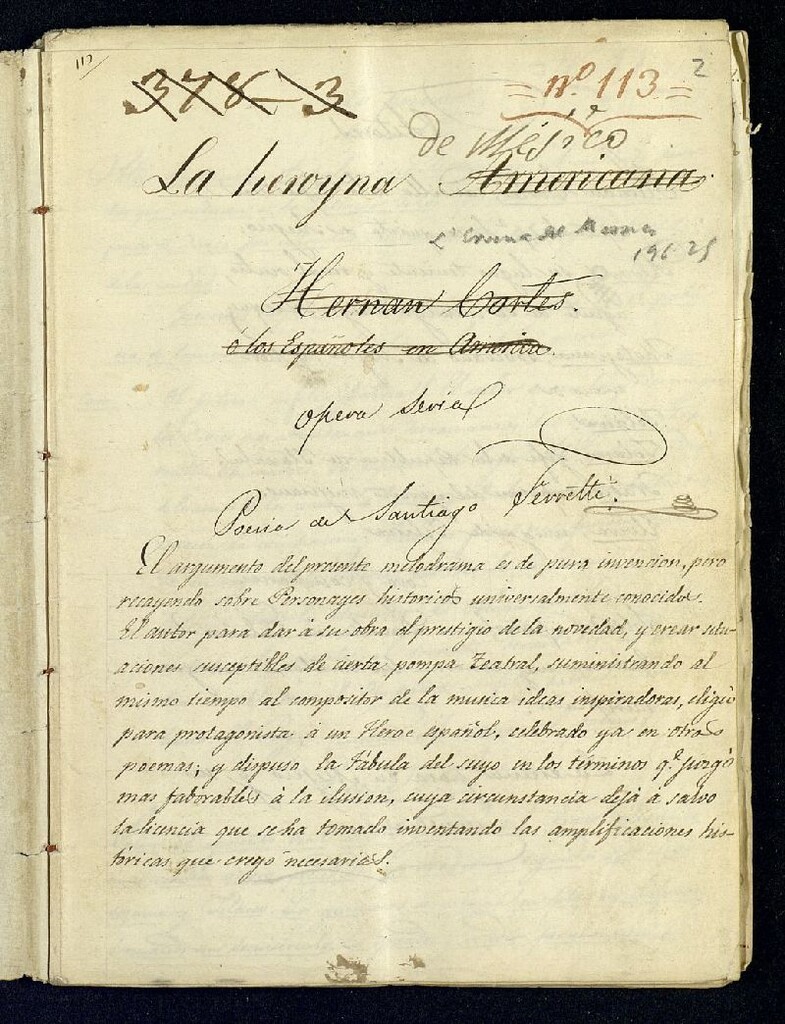 113
378-3
nº 113
2
de Mésico
La heroyna Americana.
196-25
Hernan Cortés.
ó los Españoles en America.
opera seria
Poesia de Santiago Ferretti.
El argumento del presente melodrama es de pura invencion, pero
recayendo sobre Personages historicos universalmente conocidos.
El autor para dar à su obra el prestigio de la novedad, y crear situ-
aciones susceptibles de cierta pompa Teatral, suministrando al
mismo tiempo al compositor de la musica ideas inspiradoras, eligió
para protagonista à un Heroe español, celebrado ya en otros
poemas; y dispuso la Fàbula del suyo en los términos q.e juzgó
mas faborables à la ilusion, cuya circunstancia dejà a salvo
la licencia que se ha tomado inventando las amplificaciones his-
tóricas que creyó necesarias.